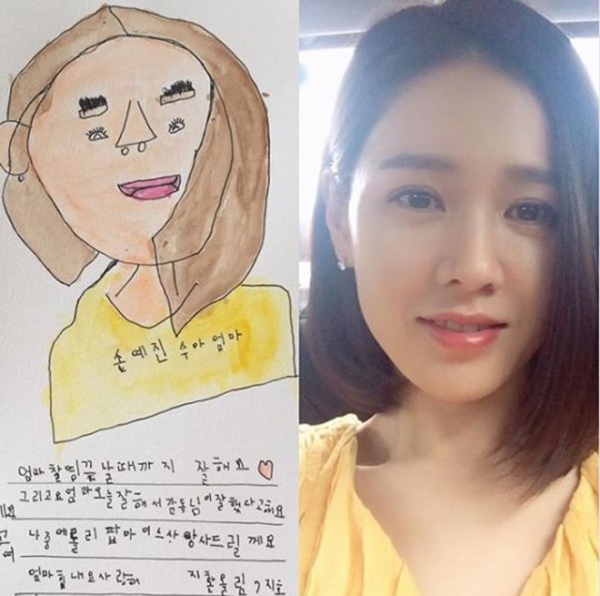 손예진 수아 엄마
엄마 촬영 끝날때까지 잘해요 ♡
그리고요 엄마 오늘 잘해서 감동님이 잘했다고해요
나중에 롤리팝 아이스 사탕사드릴께요
엄마 힘내요 사랑해 지환올림